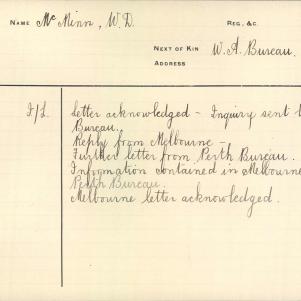 NAME Mc Minn, W.D.
REG. &C.
NEXT OF KIN W.A. Bureau.
ADDRESS
Letter acknowledged - Inquiry sent
Bureau.
Reply from Melbourne -
Further letter from Perth Bureau.
Information contained in Melbourne
Perth Bureau.
Melbourne letter acknowledged.